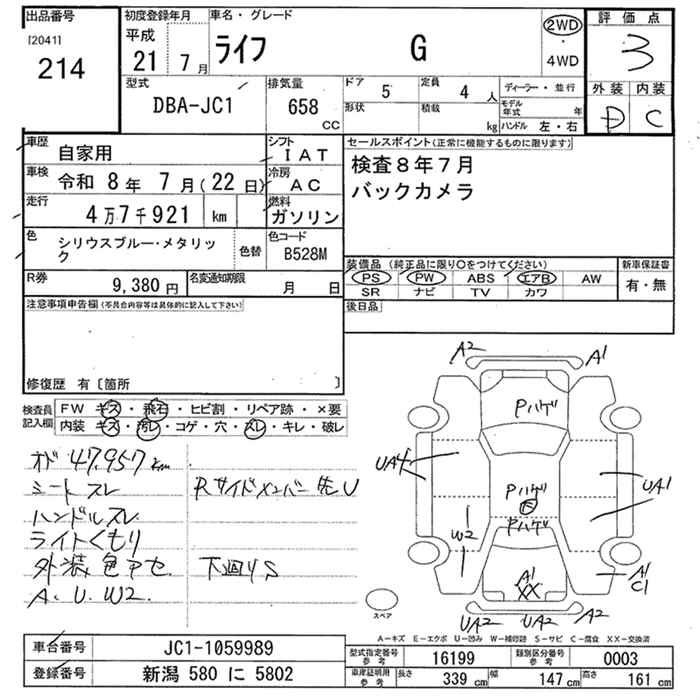 出品番号
[2041]
214
初度登録年月
平成
21年7月
車名・グレード
ライフ G
2WD
・
4WD
評価点
3
外装 内装
D C
型式
DBA-JC1
排気量
658 CC
ドア 5
定員 4人
形状
積載 kg
ディーラー・並行
モデル年式 年
ハンドル 左・右
車歴
自家用
シフト
IAT
車検 令和 8年 7月(22日)
冷房
AC
走行 4万7千921 km
燃料
ガソリン
色 シリウスブルー・メタリック
色替
色コード
B528M
R券 9,380円
名変通知期限 月 日
セールスポイント(正常に機能するものに限ります)
検査8年7月
バックカメラ
装備品(純正品に限り〇をつけてください)
PS PW ABS エアB AW
SR ナビ TV カワ
新車保証書
有・無
後日品
注意事項申告欄(不具合内容等は具体的に記入して下さい)
修復歴 有〔箇所 〕
検査員記入欄
FW キズ・飛石・ヒビ割・リペア跡・×要
内装 キズ・汚レ・コゲ・穴・スレ・キレ・破レ
オド 47,957km
シートスレ
Rサイドメンバー先U
ハンドルスレ
ライトくもり
外装色アセ
下廻りS
A. U. W2.
A2
A1
Pハゲ
UA4
Pハゲ
UA1
W2
Pハゲ
A1
XX
A1
C1
UA2
UA2
A2
スペア
A－キズ E－エクボ U－凹み W－補修跡 S－サビ C－腐食 XX－交換済
車台番号 JC1-1059989
登録番号 新潟 580 に 5802
型式指定番号参考 16199
類別区分番号参考 0003
車庫証明用参考
長さ 339 cm
幅 147 cm
高さ 161 cm